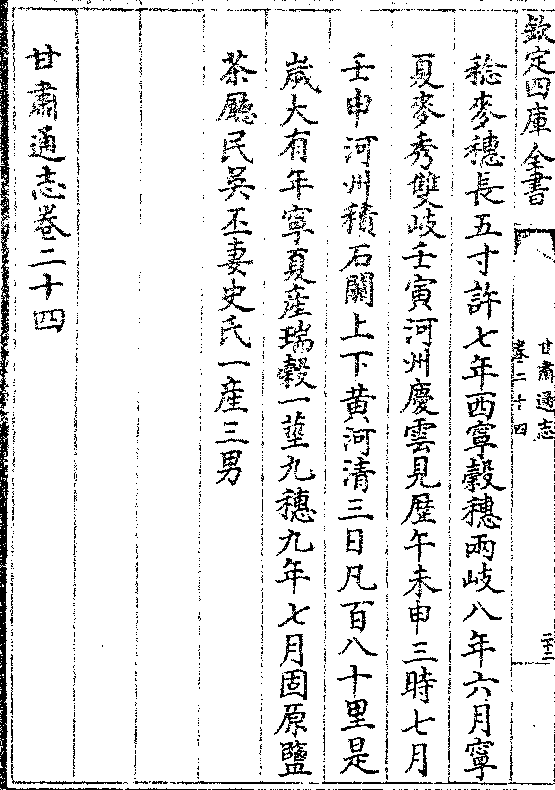 欽定四庫全書
甘肅通志
卷二十四
三十二
稔麥穗長五寸許七年西寧穀穗兩岐八年六月寧
夏麥秀雙岐壬寅河州慶雲見歴午未申三時七月
壬申河州積石關上下黄河清三日凡百八十里是
嵗大有年寧夏産瑞穀一莖九穗九年七月固原鹽
茶廳民吳丕妻史氏一産三男
甘肅通志卷二十四